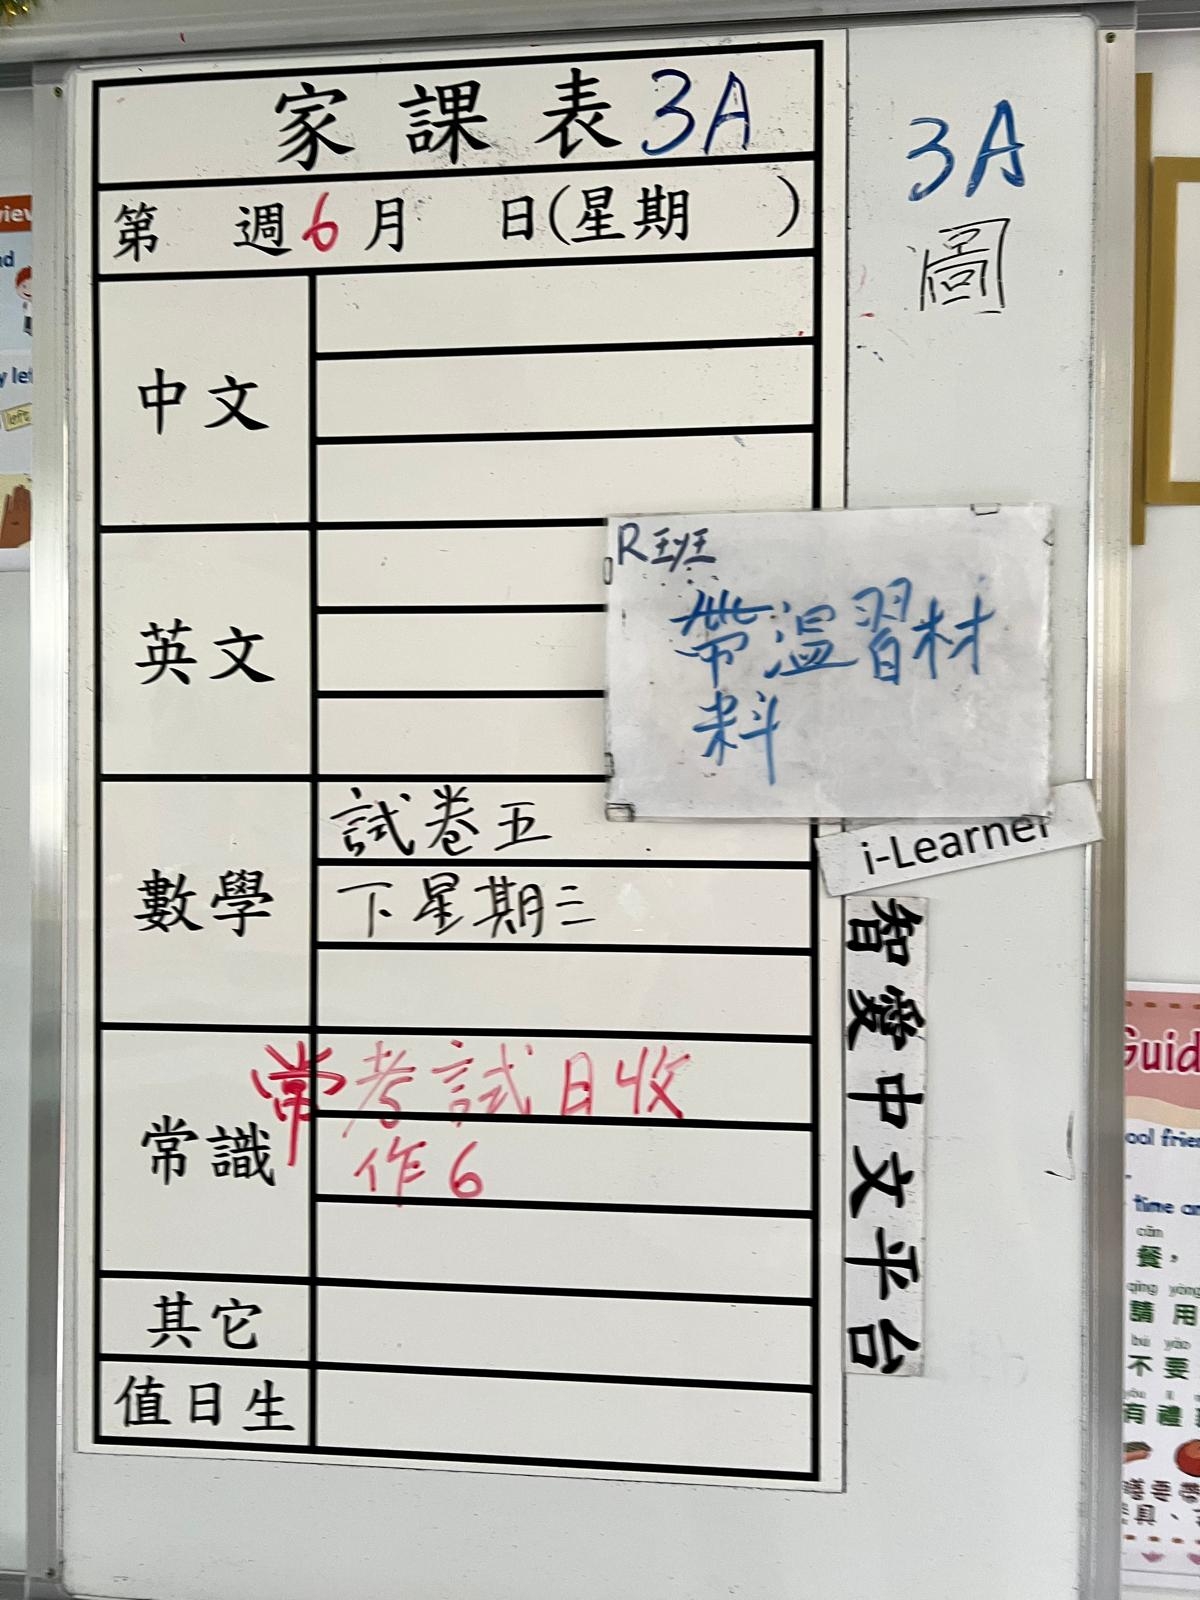 家課表 3A
第 週 6 月 日(星期 )
中文
英文
數學
試卷五
下星期三
常識
常考試日收
作6
其它
值日生
3A
圖
R班
帶溫習材
料
i-Learner
智愛中文平台
Guid
time
餐，
請用
不要
有禮